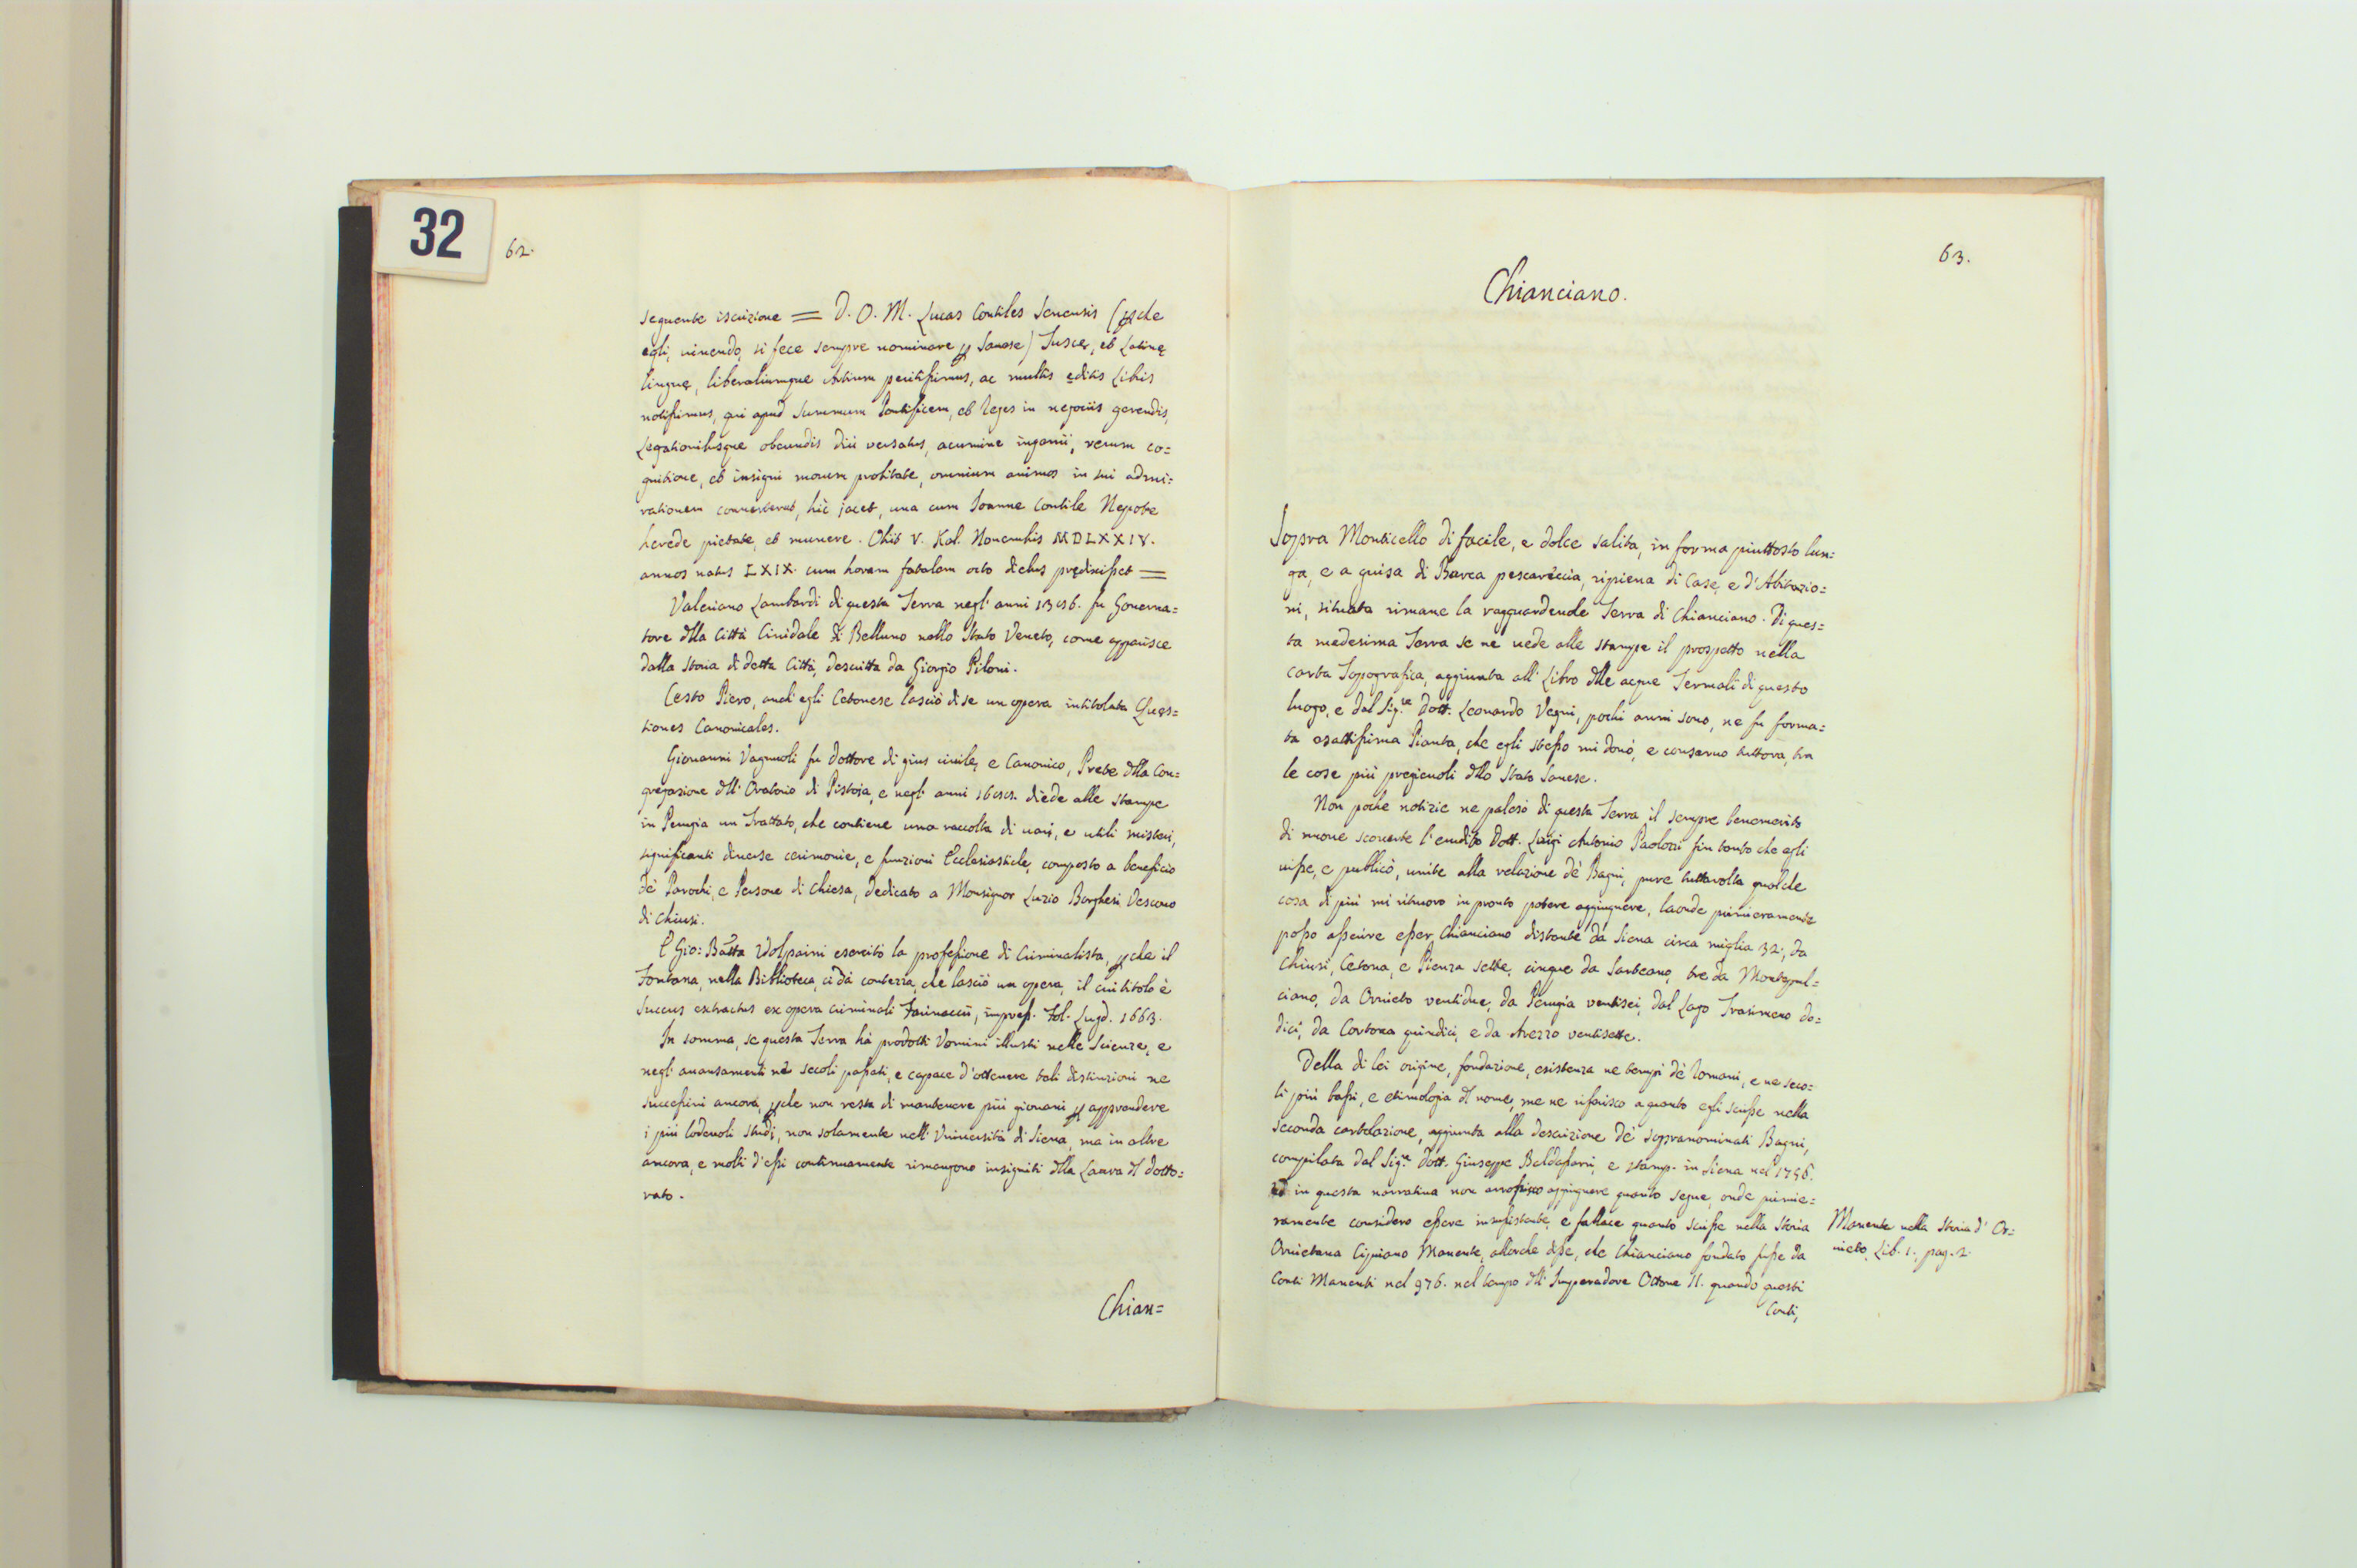 32
62.
seguente iscrizione = D. O. M. Lucas Contiles Senensis (pche
egli, uiuendo, si fece sempre nominare p Sanese) Tuscę, et Latinę
linguę, liberaliumque Artium peritissimus, ac multis editis Libris
notissimus, qui apud Summum Pontificem, et Reges in negociis gerendis,
Legationibusque obeundis diù versatus, acumine ingenii, rerum co=
gnitione, et insigni morum probitate, omnium animos in sui admi=
rationem conuerterat, hìc jacet, una cum Ioanne Contile Nepote
herede pietate, et munere. Obiit V. Kal. Nouembris MDLXXIV.
annos natus LXIX. cum horam fatalem octo diebus prędixisset =
Valeriano Lambardi di questa Terra negl' anni fu Gouerna=
tore dlla Città Ciuidale di Belluno nello Stato Veneto, come apparisce
dalla storia di detta Città, descritta da Giorgio Piloni.
Cesto Piero, anch'egli Cetonese lasciò di se un opera intitolata Quęs=
tiones Canonicales.
Giouanni Vagnuoli fu Dottore di gius ciuile, e Canonico, Prete dlla Con=
gregazione dll' Oratorio di Pistoja, e negl' anni diede alle stampe
in Perugia un Trattato, che contiene una raccolta di uarj, e utili misteri,
significanti diuerse cerimonie, e funzioni Ecclesiastiche, composto a beneficio
de' Parochi, e Persone di Chiesa, dedicato a Monsignor Luzio Borghesi Vescouo
di Chiusi.
E Gio: Batta Volpaini esercitò la professione di Criminalista, pche il
Fontana, nella Biblioteca, ci dà contezza, che lasciò un opera, il cui titolo è
Succus extractus ex opera criminali Farinaccii, impress. Fol. Lugd. 1663.
In somma, se questa Terra hà prodotti Uomini illustri nelle Scienze, e
negl' auansamenti nè secoli passati, e capace d'ottenere tali distinzioni ne
successiui ancora, pche non resta di mantenere più giouani p apprendere
i più lodeuoli studj, non solamente nell' Vniuersità di Siena, ma in altre
ancora, e molti d'essi continuamente rimangono insigniti dlla Laurea dl dotto=
rato.
Chian=
63.
Chianciano.
Sopra Monticello di facile, e dolce salita, in forma piuttosto lun=
ga, e a guisa di Barca pescareccia, ripiena di Case, e d'Abitazio=
ni, situata rimane la ragguardeuole Terra di Chianciano. Di ques=
ta medesima Terra se ne uede alle stampe il prospetto nella
carta Topografica, aggiunta all' Libro dlle acque Termali di questo
luogo, e dal Sig.re Dott. Leonardo Vegni, pochi anni sono, ne fu forma=
ta esattissima Pianta, che egli stesso mi donò, e conseruo tuttora, tra
le cose più pregieuoli dllo Stato Sanese.
Non poche notizie ne palesò di questa Terra il sempre benemerito
di nuoue scouerte l'erudito Dott. Luigi Antonio Paolozzi fin tanto che egli
uisse, e pubblicò, unite alla relazione dè Bagni, pure tuttauolta qualche
cosa di più mi ritruouo in pronto potere aggiugnere, laonde primieramente
posso asserire esser Chianciano distante da Siena circa miglia 32, da
Chiusi, Cetona, e Pienza sette, cinque da Sarteano, tre da Montepul=
ciano, da Oruieto ventidue, da Perugia ventisei, dal Lago Trasimeno do=
dici, da Cortona quindici, e da Arezzo ventisette.
Della di lei origine, fondazione, esistenza ne tempi dè Romani, e ne seco=
li più bassi, e etimologia dl nome, me ne riferisco a quanto egli scrisse nella
seconda cartolazione, aggiunta alla descrizione dè sopranominati Bagni,
compilata dal Sig.re Dott. Giuseppe Baldassarri, e stamp. in Siena nel 1756.
in questa narratiua non aggiugnere quanto segue, onde primie=
ramente considero essere insussistente, e fallace quanto scrisse nella Storia
Oruietana Cipriano Manente, allorche disse, che Chianciano fondato fusse da
Conti Manenti nel 976. nel tempo dll' Imperadore Ottone II. quando questi
Conti,
Manente nella Storia d' Or=
uieto, Lib. 1., pag. 2.